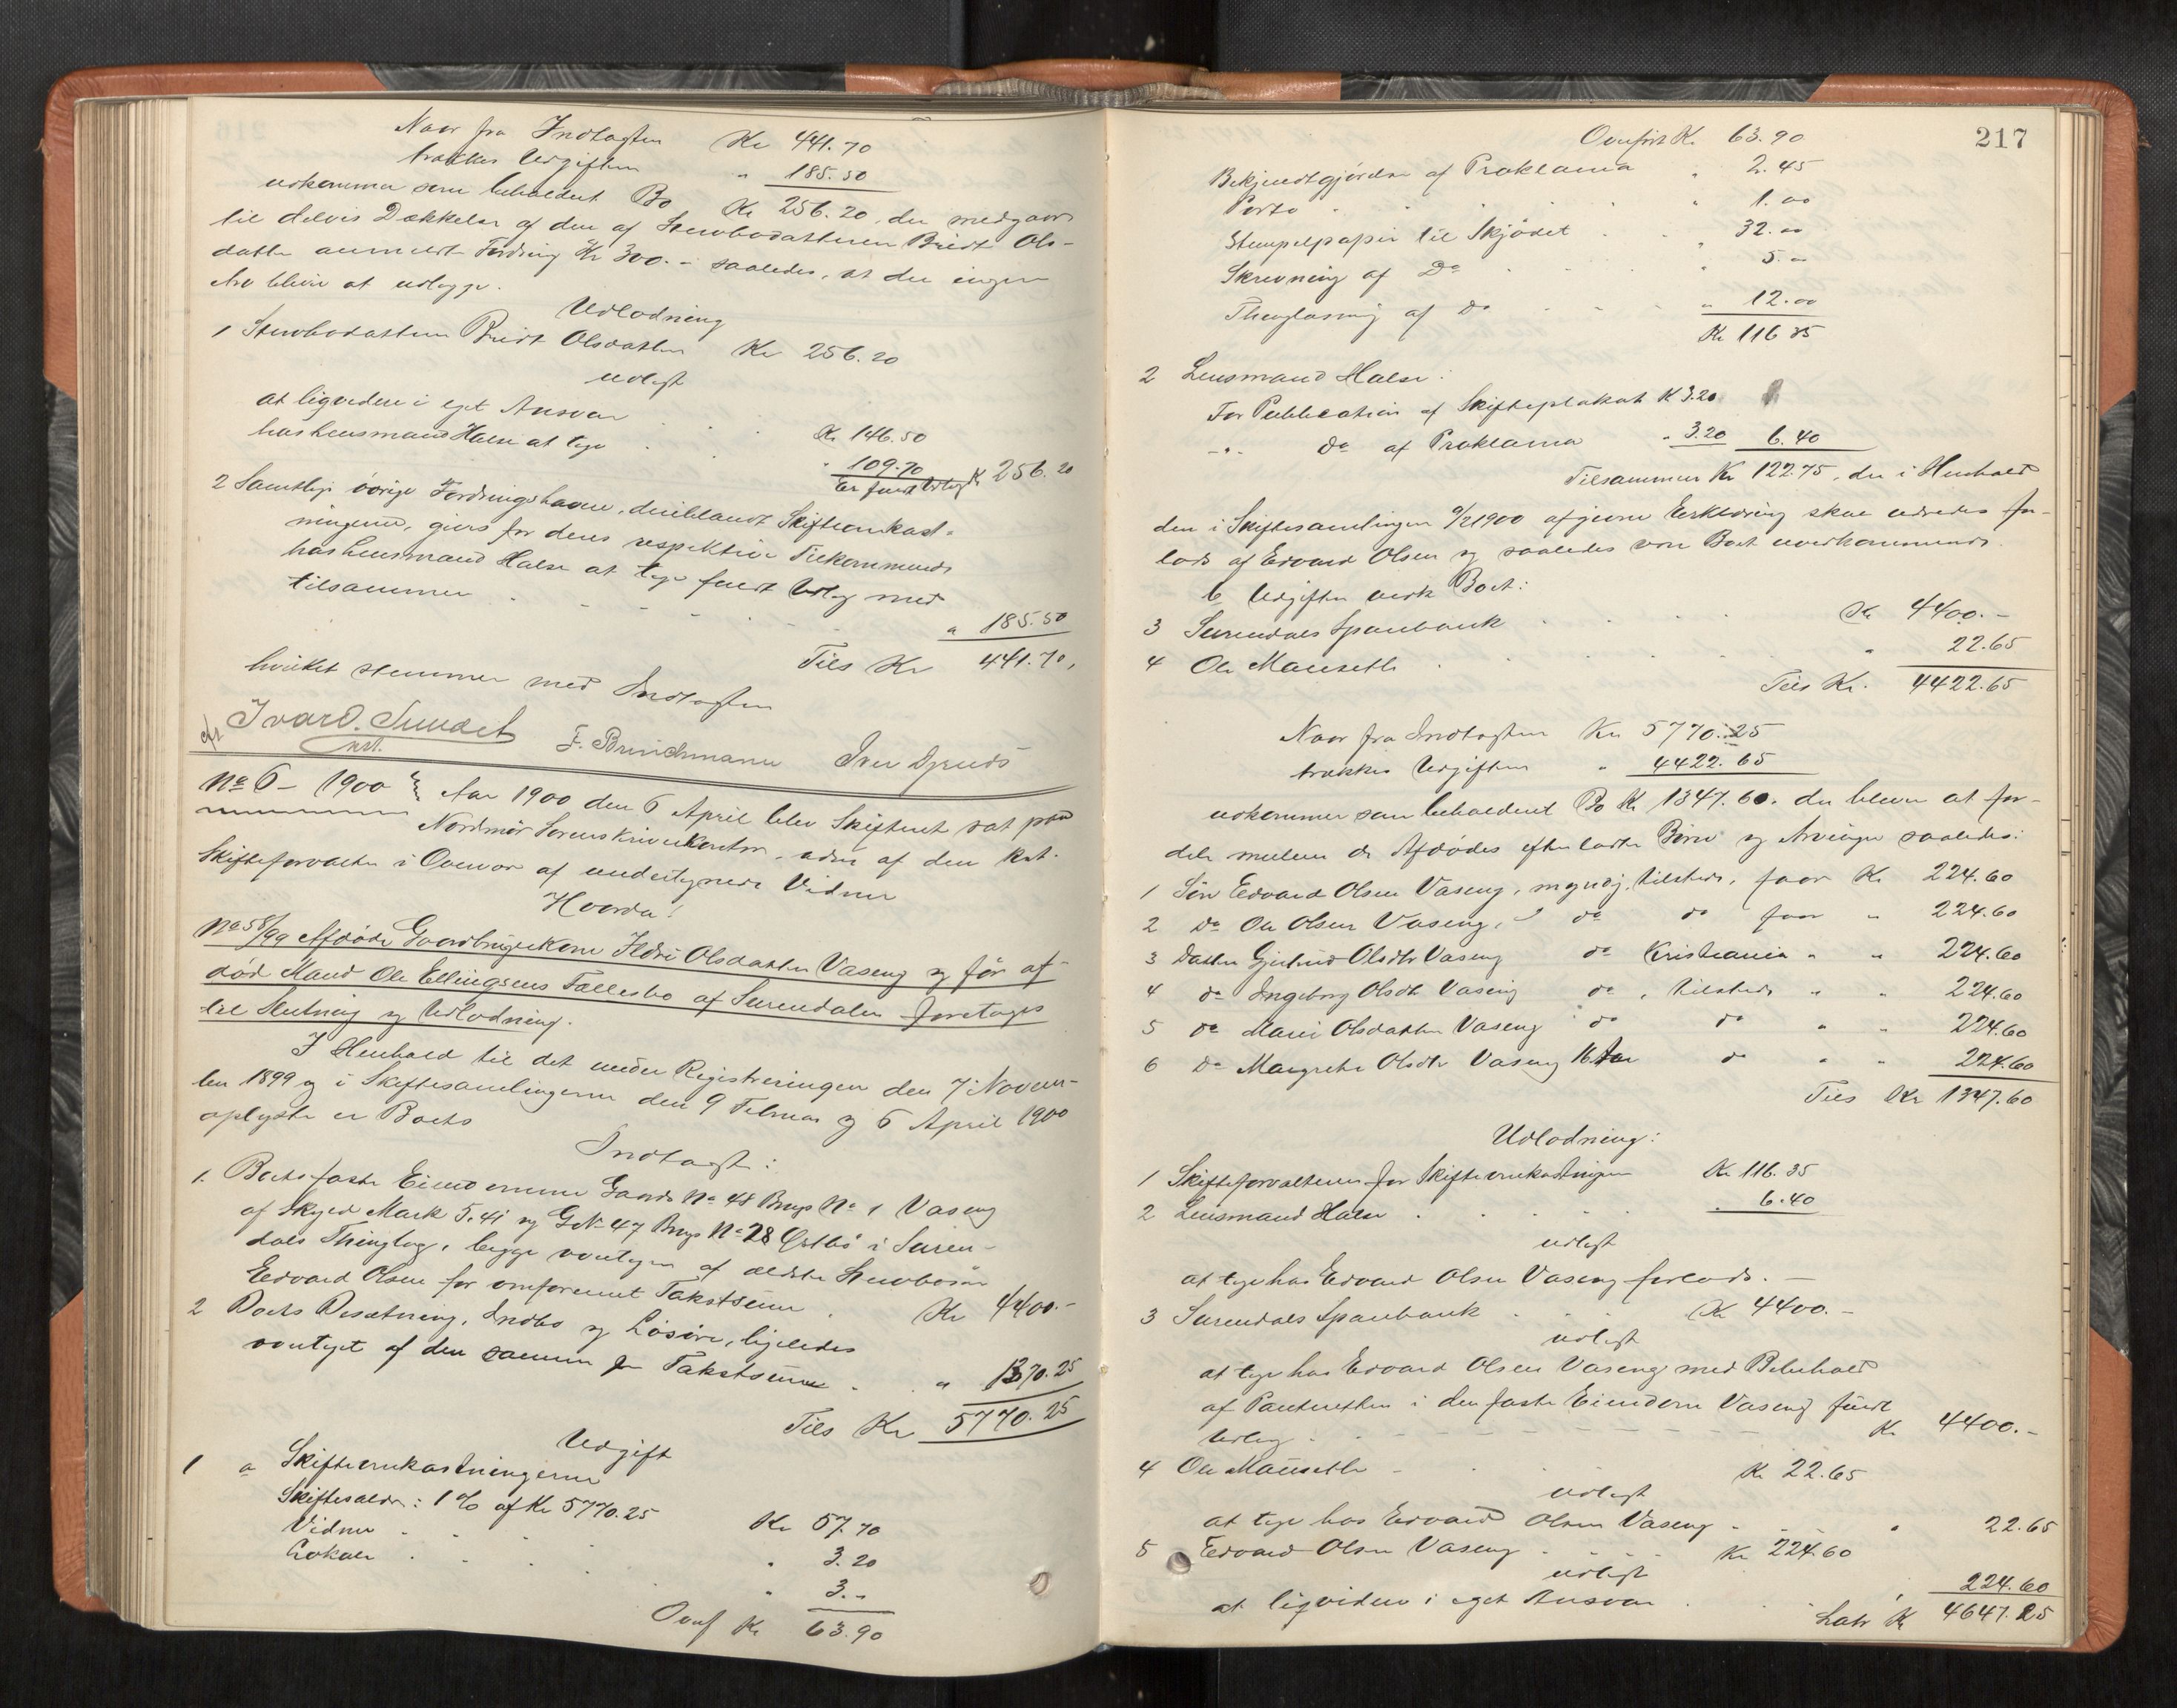 Naar fra Indtægten Kr 441.70
trækkes Udgiften " 185.50
udkommer som beholdent Bo Kr 256.20, der medgaar
til delvis Dækkelse af den af Stervbodatteren Bridt Ols-
datter anmeldte Fordring Kr 300.- saaledes, at der ingen
Arv bliver at udlægge.
Udlodning
1 Stervbodatteren Bridt Olsdatter Kr 256.20
udlagt
at liqvidere i eget Ansvar Kr 146.50
hos Lensmand Halse at tage " 109.70
Er fuldt Udlæg Kr 256.20
2 Samtlige øvrige Fordringshavere, deriblandt Skifteomkost-
ningerne, gives for deres respektive Tilkommende
hos Lensmand Halse at tage fuldt Udlæg med
tilsammen " 185.50
Tils Kr 441.70,
hvilket stemmer med Indtægten
Ivar O. Sundet F. Brinchmann Iver
cst.
No 6 - 1900 Aar 1900 den 6 April blev Skifteret sat paa
Nordmør Sorenskriverkontor, adm af den kst.
Skifteforvalter i Overvær af undertegnede Vidner
Hvorda:
No 58/99 Afdøde Gaardbrugerkone Ildri Olsdatter Vaseng og før af-
død Mand Ole Ellingsens Fællesbo af Surendalen foretages
til Slutning og Udlodning.
I Henhold til det under Registreringen den 7 Novem-
ber 1899 og i Skiftesamlingerne den 9 Februar og 6 April 1900
oplyste er Boets
Indtægt:
1. Boets faste Eiendomme Gaards No 48 Brugs No 1 Vaseng
af Skyld Mark 5.41 og GNo 47 Brugs No 28 i Suren-
dals Thinglag, begge overtagen af ældste Stervbosøn
Edvard Olsen for omforenet Takstsum Kr 4400.-
2 Boets Besætning, Indbo og Løsøre, ligeledes
overtaget af den samme for Takstsum " 1370.25
Tils Kr 5770.25
Udgift
1 a Skifteomkostningerne
Skiftesalær: 1% af Kr 5770.25 Kr 57.70
Vidner " 3.20
Lokale " 3.-
Overf Kr 63.90
217
Overført Kr 63.90
Bekjendtgjørelse af Proklama " 2.45
Porto " 1.00
Stempelpapir til Skjødet 32.00
Skrivning af Do " 5.-
Thinglæsning af Do " 12.00
Kr 116 35
2 Lensmand Halse:
For Publication af Skifteplakat K 3.20
-"- Do af Proklama " 3.20 6.40
Tilsammen Kr 122.75, der i Henhold
den i Skiftesamlingen 9/2 1900 afgivne Erklæring skal udredes for-
lods af Edvard Olsen og saaledes være Boet uvedkommende.
b Udgifter vedk Boet:
3 Surendals Sparebank Kr 4400.-
4 Ole Mauseth " 22.65
Tils Kr. 4422.65
Naar fra Indtægten Kr 5770.25
trækkes Udgiften " 4422.65
udkommer som beholdent Bo Kr 1347.60. der bliver at for-
dele mellem de Afdødes efterladte Børn og Arvinger saaledes:
1 Søn Edvard Olsen Vaseng, myndig, tilstede, faar Kr 224.60
2 Do Ole Olsen Vaseng, do do faar " 224.60
3 Datter Gjertrud Olsdtr Vaseng do Kristiania " " 224.60
4 do Ingeborg Olsdtr Vaseng do, tilstede " " 224.60
5 do Marie Olsdatter Vaseng do do " " 224.60
6 Do Margrethe Olsdtr Vaseng 16 Aar do " " 224.60
Tils Kr 1347.60
Udlodning:
1 Skifteforvalteren for Skifteomkostninger Kr 116.35
2 Lensmand Halse " 6.40
udlagt
at tage hos Edvard Olsen Vaseng forlods. -
3 Surendals Sparebank Kr 4400.-
udlagt
at tage hos Edvard Olsen Vaseng med Beholdt
af Panteretten i den faste Eiendom Vaseng fuldt
Udlæg Kr 4400.-
4 Ole Mauseth Kr 22.65
udlagt
at tage hos Edvard Olsen Vaseng " 22.65
5 Edvard Olsen Vaseng Kr 224.60
udlagt
at liqvidere i eget Ansvar " 224.60
Latr K 4647.25